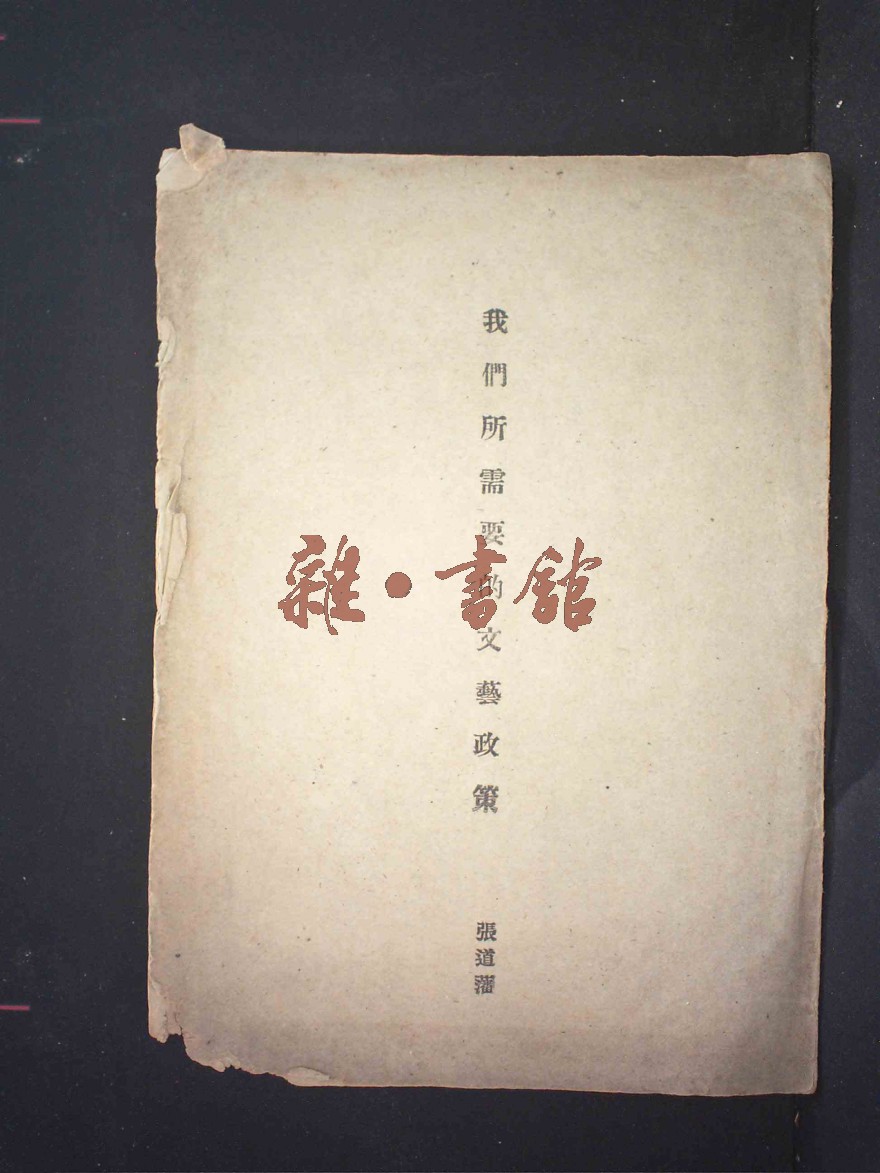 我們所需要的文藝政策
張道藩
雜·書館